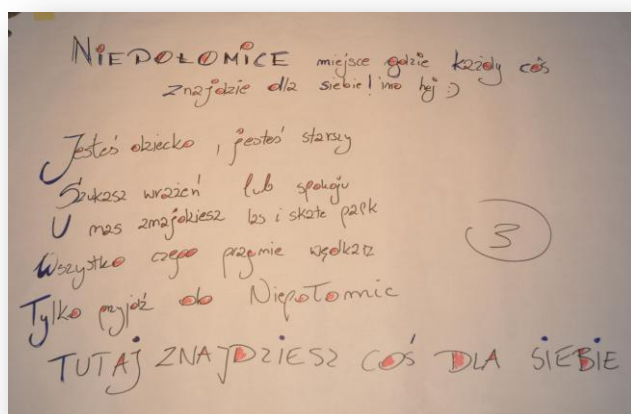 NIEPOŁOMICE miejsce gdzie każdy coś
znajdzie dla siebie! no hej :)
Jesteś dziecko, jesteś starszy
Szukasz wrażeń lub spokoju
U nas znajdziesz las i skate park
Wszystko czego pragnie wędkarz
Tylko przyjdź do Niepołomic
3
TUTAJ ZNAJDZIESZ COŚ DLA SIEBIE